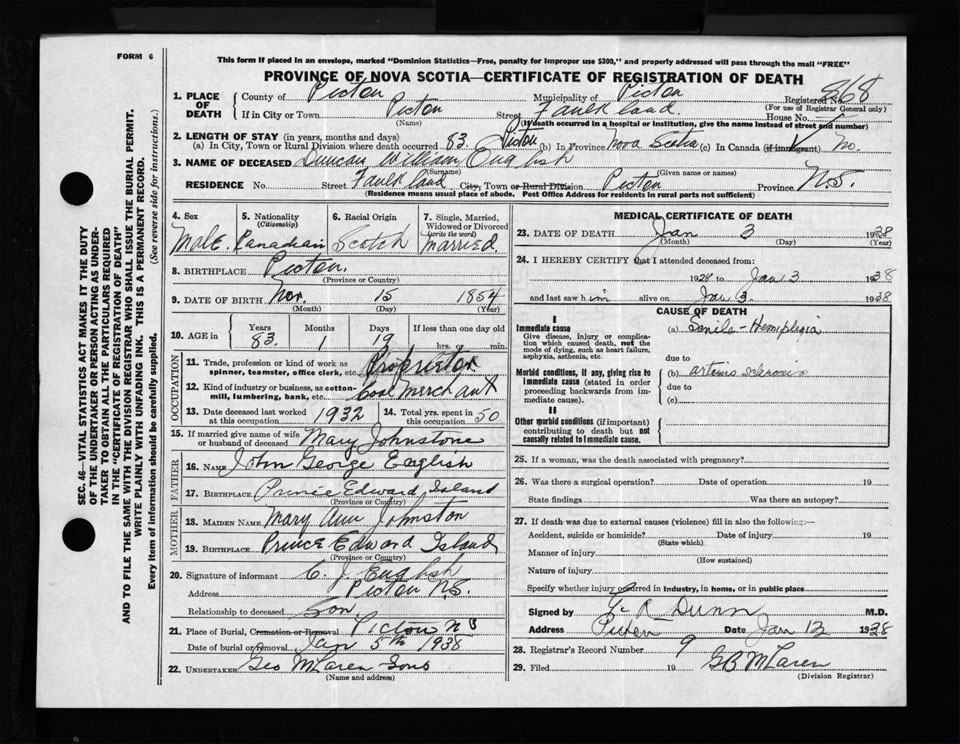 FORM 6
This form if placed in an envelope, marked "Dominion Statistics—Free, penalty for improper use $300," and properly addressed will pass through the mail "FREE"
PROVINCE OF NOVA SCOTIA—CERTIFICATE OF REGISTRATION OF DEATH
1. PLACE OF DEATH
County of Pictou Municipality of Pictou Registered No. 868
(For use of Registrar General only)
If in City or Town Pictou Street Faulkland House No.
(Name) (If death occurred in a hospital or institution, give the name instead of street and number)
2. LENGTH OF STAY (in years, months and days)
(a) In City, Town or Rural Division where death occurred 83. Pictou (b) In Province Nova Scotia (c) In Canada (if immigrant) No.
3. NAME OF DECEASED Duncan William English
(Surname) (Given name or names)
RESIDENCE No. Street Faulkland City, Town or Rural Division Pictou Province N.S.
(Residence means usual place of abode. Post Office Address for residents in rural parts not sufficient)
4. Sex
Male.
5. Nationality
(Citizenship)
Canadian
6. Racial Origin
Scotch
7. Single, Married, Widowed or Divorced
(write the word)
Married
8. BIRTHPLACE Pictou.
(Province or Country)
9. DATE OF BIRTH Nov. 15 1854
(Month) (Day) (Year)
10. AGE in
Years Months Days If less than one day old
83. 1 19 hrs. or min.
OCCUPATION
11. Trade, profession or kind of work as spinner, teamster, office clerk, etc. Proprietor
12. Kind of industry or business, as cotton-mill, lumbering, bank, etc. Coal Merchant
13. Date deceased last worked at this occupation 1932
14. Total yrs. spent in 50
15. If married give name of wife or husband of deceased Mary Johnstone
FATHER
16. NAME John George English
17. BIRTHPLACE Prince Edward Island
(Province or Country)
MOTHER
18. MAIDEN NAME Mary Ann Johnston
19. BIRTHPLACE Prince Edward Island
(Province or Country)
20. Signature of informant C. J. English
Address Pictou N.S.
Relationship to deceased Son.
21. Place of Burial, Cremation or Removal Pictou NS
Date of burial or removal Jan 5th 1938
22. UNDERTAKER Geo McLaren Sons
(Name and address)
MEDICAL CERTIFICATE OF DEATH
23. DATE OF DEATH Jan 3 1938
(Month) (Day) (Year)
24. I HEREBY CERTIFY that I attended deceased from:
1928 to Jan 3 1938
and last saw him alive on Jan 3 1938
CAUSE OF DEATH
I
Immediate cause
Give disease, injury or complication which caused death, not the mode of dying, such as heart failure, asphyxia, asthenia, etc.
(a) Senile - Hemiplegia
due to
Morbid conditions, if any, giving rise to immediate cause (stated in order proceeding backwards from immediate cause).
(b) arterio sclerosis
due to
(c)
II
Other morbid conditions (if important) contributing to death but not causally related to immediate cause.
25. If a woman, was the death associated with pregnancy?
26. Was there a surgical operation? Date of operation 19
State findings Was there an autopsy?
27. If death was due to external causes (violence) fill in also the following:—
Accident, suicide or homicide? Date of injury 19
(State which)
Manner of injury
(How sustained)
Nature of injury
Specify whether injury occurred in industry, in home, or in public place
Signed by R Dunn M.D.
Address Pictou Date Jan 12 1938
28. Registrar's Record Number 9
29. Filed 19 GB McLaren
(Division Registrar)
SEC. 46—VITAL STATISTICS ACT MAKES IT THE DUTY
OF THE UNDERTAKER OR PERSON ACTING AS UNDER-
TAKER TO OBTAIN ALL THE PARTICULARS REQUIRED
IN THE "CERTIFICATE OF REGISTRATION OF DEATH"
AND TO FILE THE SAME WITH THE DIVISION REGISTRAR WHO SHALL ISSUE THE BURIAL PERMIT.
WRITE PLAINLY WITH UNFADING INK. THIS IS A PERMANENT RECORD.
Every item of information should be carefully supplied. (See reverse side for instructions.)